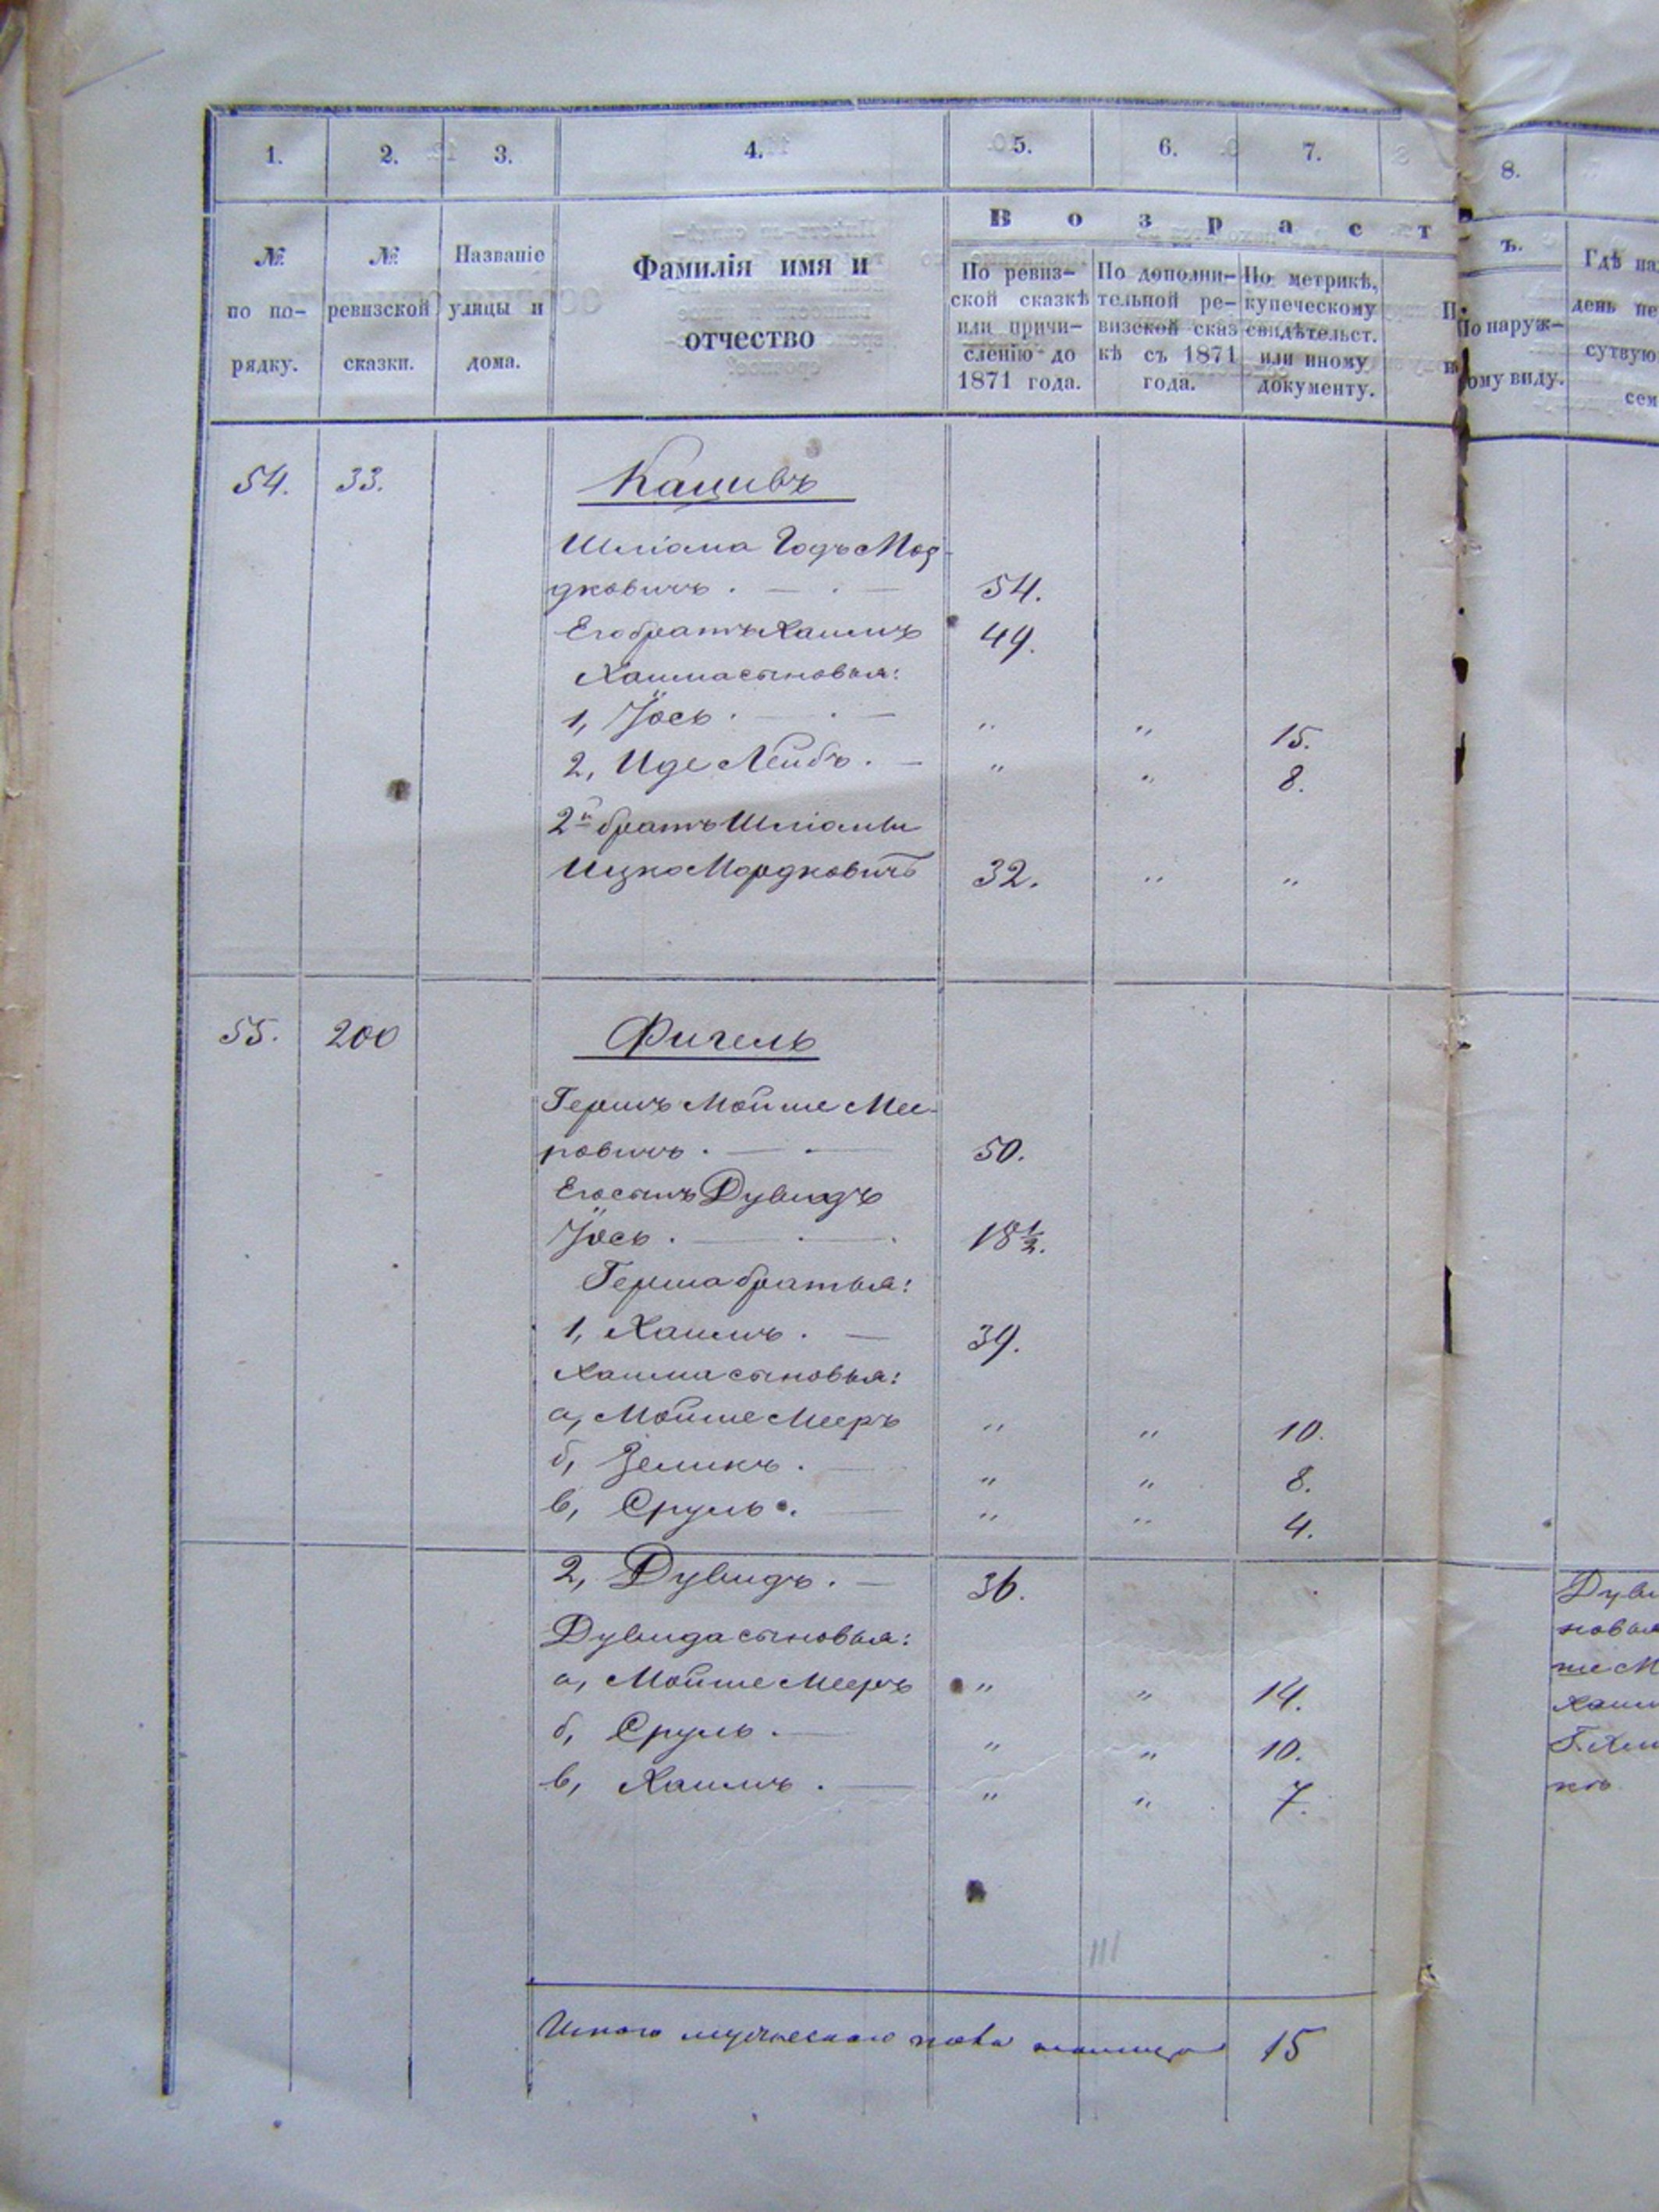 1. 2. 3. 4. 5. 6. 7. 8.
Возраст ъ.
№ по порядку.
№ ревизской сказки.
Названіе улицы и дома.
Фамилія имя и отчество
По ревиз-
ской сказкѣ
или причи-
сленію до
1871 года.
По дополни-
тельной ре-
визской сказ
кѣ съ 1871
года.
По метрикѣ,
купеческому
свидѣтельст.
или иному
документу.
По наруж-
ному виду.
Гдѣ на
день пе
сутвую
сем
54. 33. Кацивъ
Шліома Годъ Мор-
дковичъ . — . — 54.
Его братъ Хаимъ 49.
Хаима сыновья:
1, Іось . — . — " " 15.
2, Иде Лейбъ . — " " 8.
2й братъ Шліомы
Ицко Мордковичъ 32. " "
55. 200 Фигель
Гершъ Мойше Мее-
ровичъ . — . — 50.
Его сынъ Дувидъ
Іось . — . — . 18 1/2.
Герша братья:
1, Хаимъ . — 39.
Хаима сыновья:
а, Мойше Мееръ " " 10.
б, Зеликъ . — " " 8.
в, Сруль . — " " 4.
2, Дувидъ . — 36.
Дувида сыновья:
а, Мойше Мееръ " " 14.
б, Сруль . — " " 10.
в, Хаимъ . — " " 7.
Дуви
новья
ше М
Хаим
Итого мужескаго пола 15